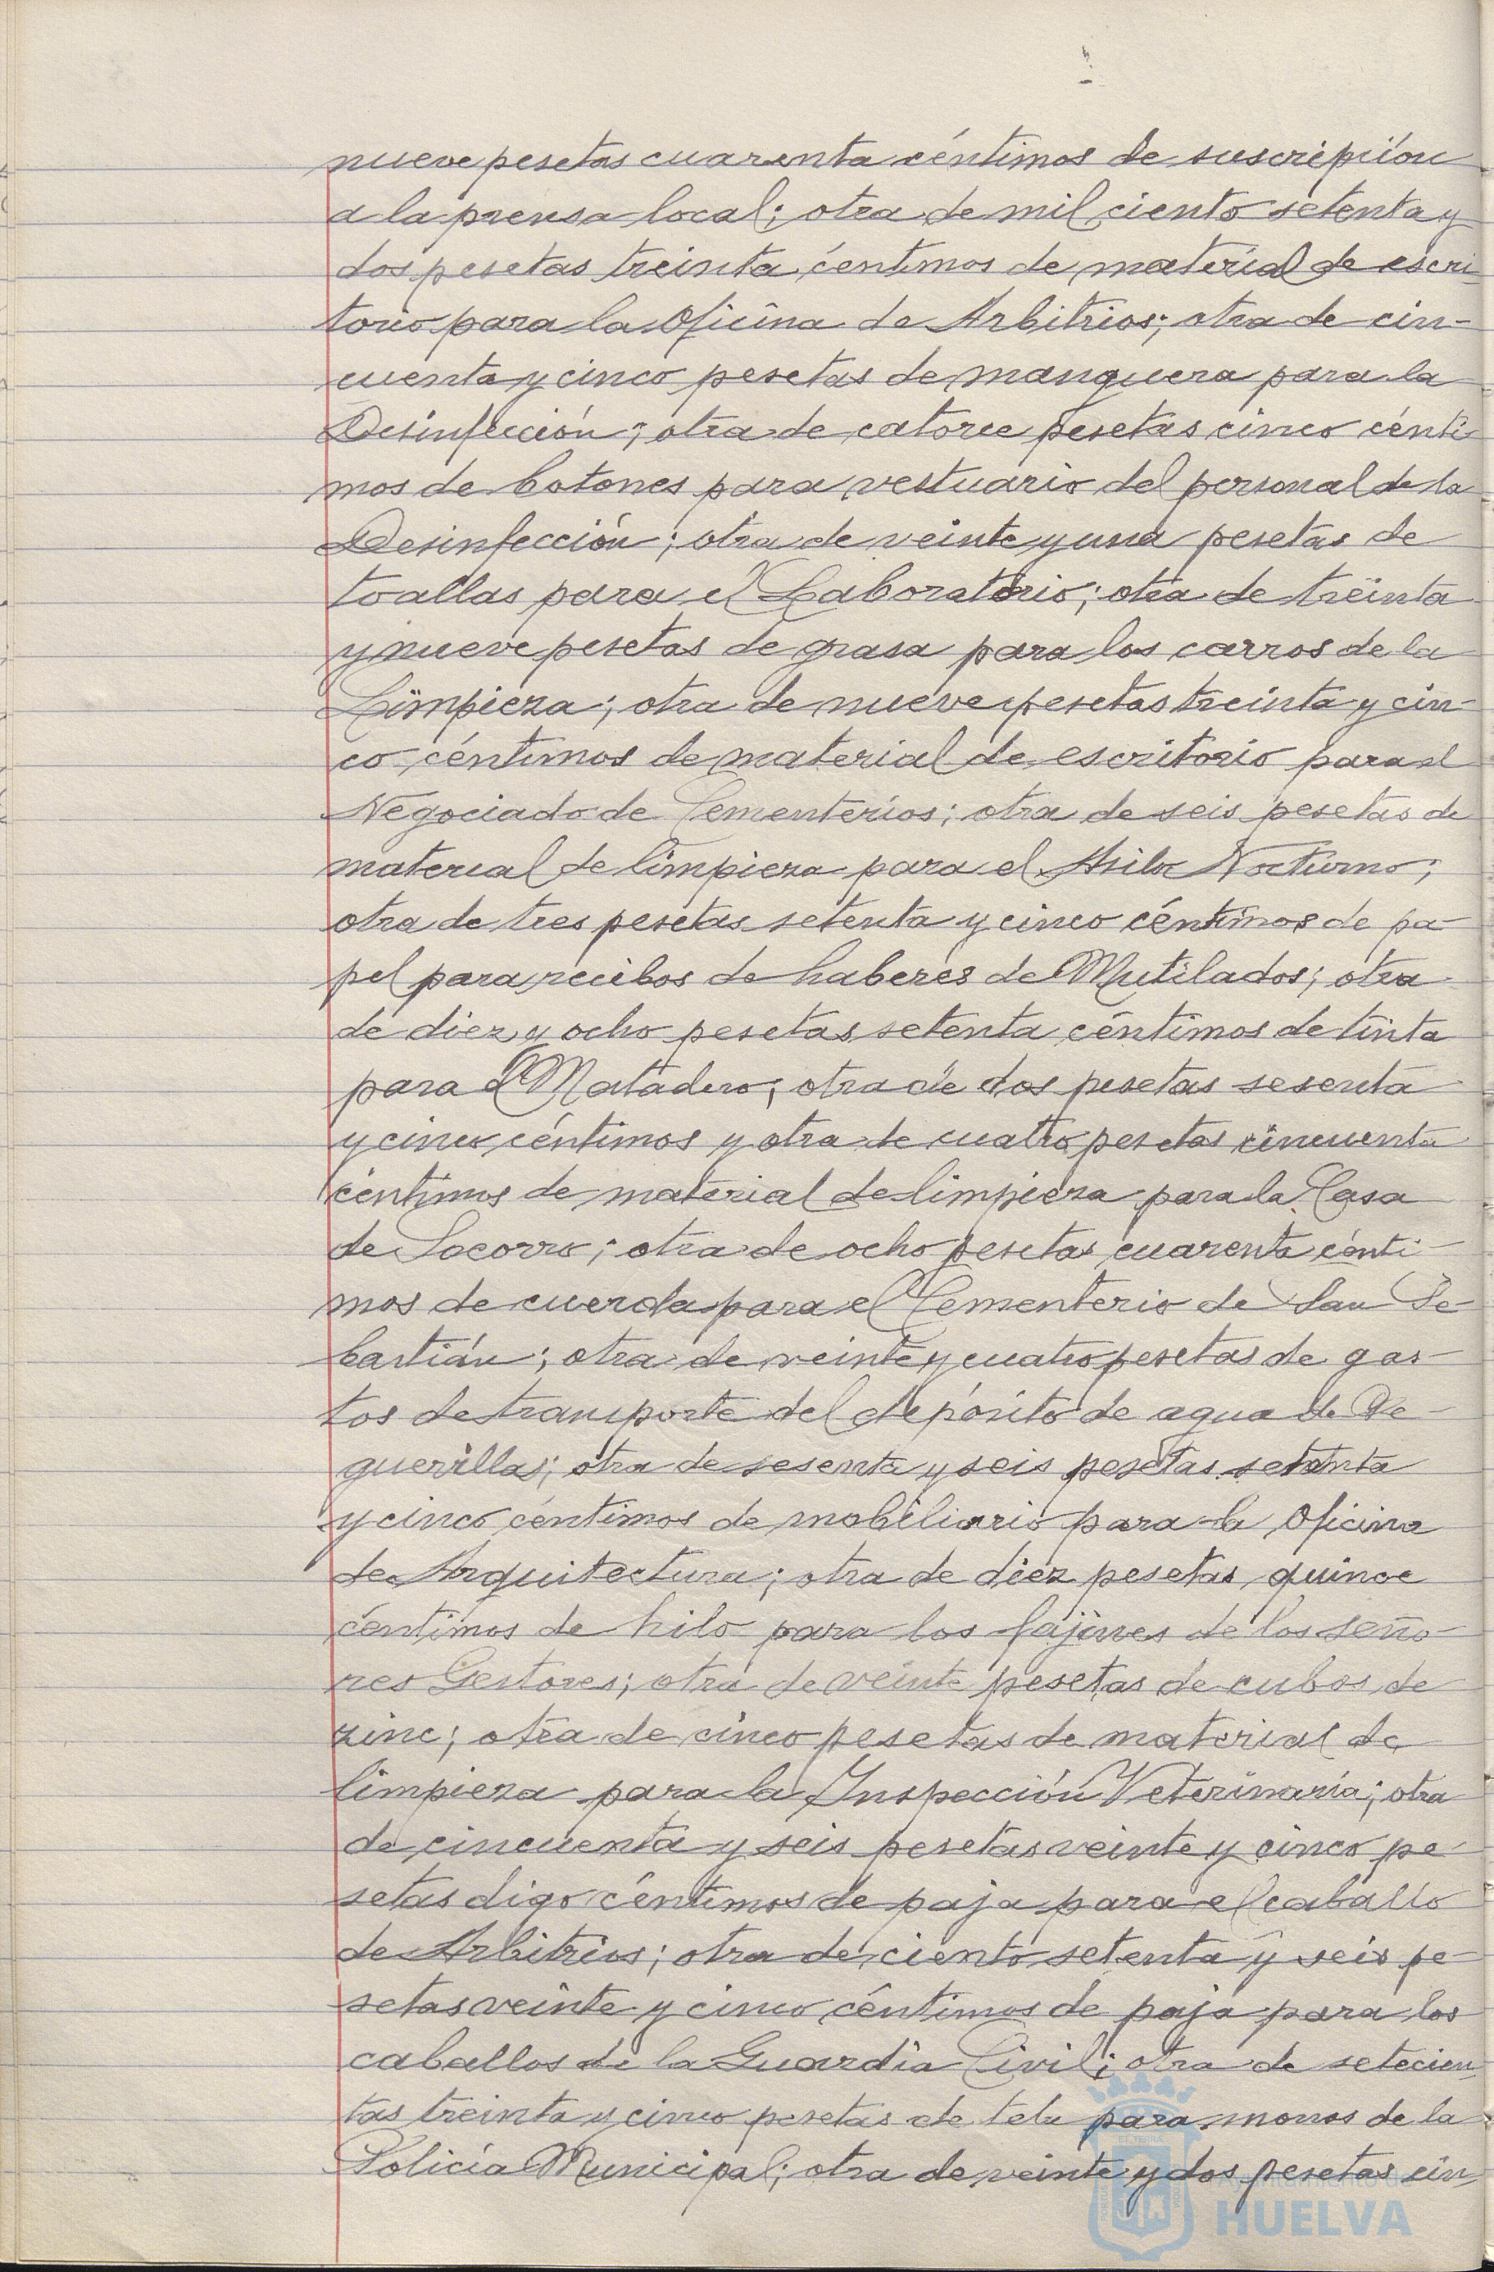 nueve pesetas cuarenta céntimos de suscripción
a la prensa local; otra de mil ciento setenta y
dos pesetas treinta céntimos de material de escri-
torio para la Oficina de Arbitrios; otra de cin-
cuenta y cinco pesetas de manguera para la
Desinfección; otra de catorce pesetas cinco cénti-
mos de botones para vestuario del personal de la
Desinfección; otra de veinte y una pesetas de
toallas para el Laboratorio; otra de treinta
y nueve pesetas de grasa para los carros de la
Limpieza; otra de nueve pesetas treinta y cin-
co céntimos de material de escritorio para el
Negociado de Cementerios; otra de seis pesetas de
material de limpieza para el Asilo Nocturno;
otra de tres pesetas setenta y cinco céntimos de pa-
pel para recibos de haberes de Mutilados; otra
de diez y ocho pesetas setenta céntimos de tinta
para el Matadero; otra de dos pesetas sesenta
y cinco céntimos y otra de cuatro pesetas cincuenta
céntimos de material de limpieza para la Casa
de Socorro; otra de ocho pesetas cuarenta cénti-
mos de cuerda para el Cementerio de San Se-
bastián; otra de veinte y cuatro pesetas de gas-
tos de transporte del depósito de agua de Pe-
guerillas; otra de sesenta y seis pesetas setenta
y cinco céntimos de mobiliario para la Oficina
de Arquitectura; otra de diez pesetas quince
céntimos de hilo para los fajines de los Seño-
res Gestores; otra de veinte pesetas de cubos de
zinc; otra de cinco pesetas de material de
limpieza para la Inspección Veterinaria; otra
de cincuenta y seis pesetas veinte y cinco pe-
setas digo céntimos de paja para el caballo
de Arbitrios; otra de ciento setenta y seis pe-
setas veinte y cinco céntimos de paja para los
caballos de la Guardia Civil; otra de setecien-
tas treinta y cinco pesetas de tela para monos de la
Policía Municipal; otra de veinte y dos pesetas cin-
Ayuntamiento de
HUELVA